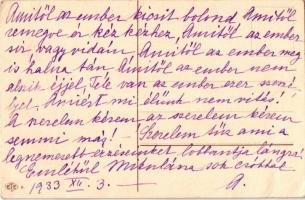 Amitől az ember kicsit bolond, Amitől
remegve ér kéz kézhez, Amitől az ember
sír vagy vidám Amitől az ember meg
is halna tán Amitől az ember nem
alszik éjjel, Tele van az ember ezer
Amiért mi élünk nem vitás!
A szerelem kérem az szerelem kérem
semmi más! Szerelem tűz ami a
legnemesebb érzéseinket lobbantja lángra
Emlékül Mikulásra sok csókkal
1933 XII. 3. A.